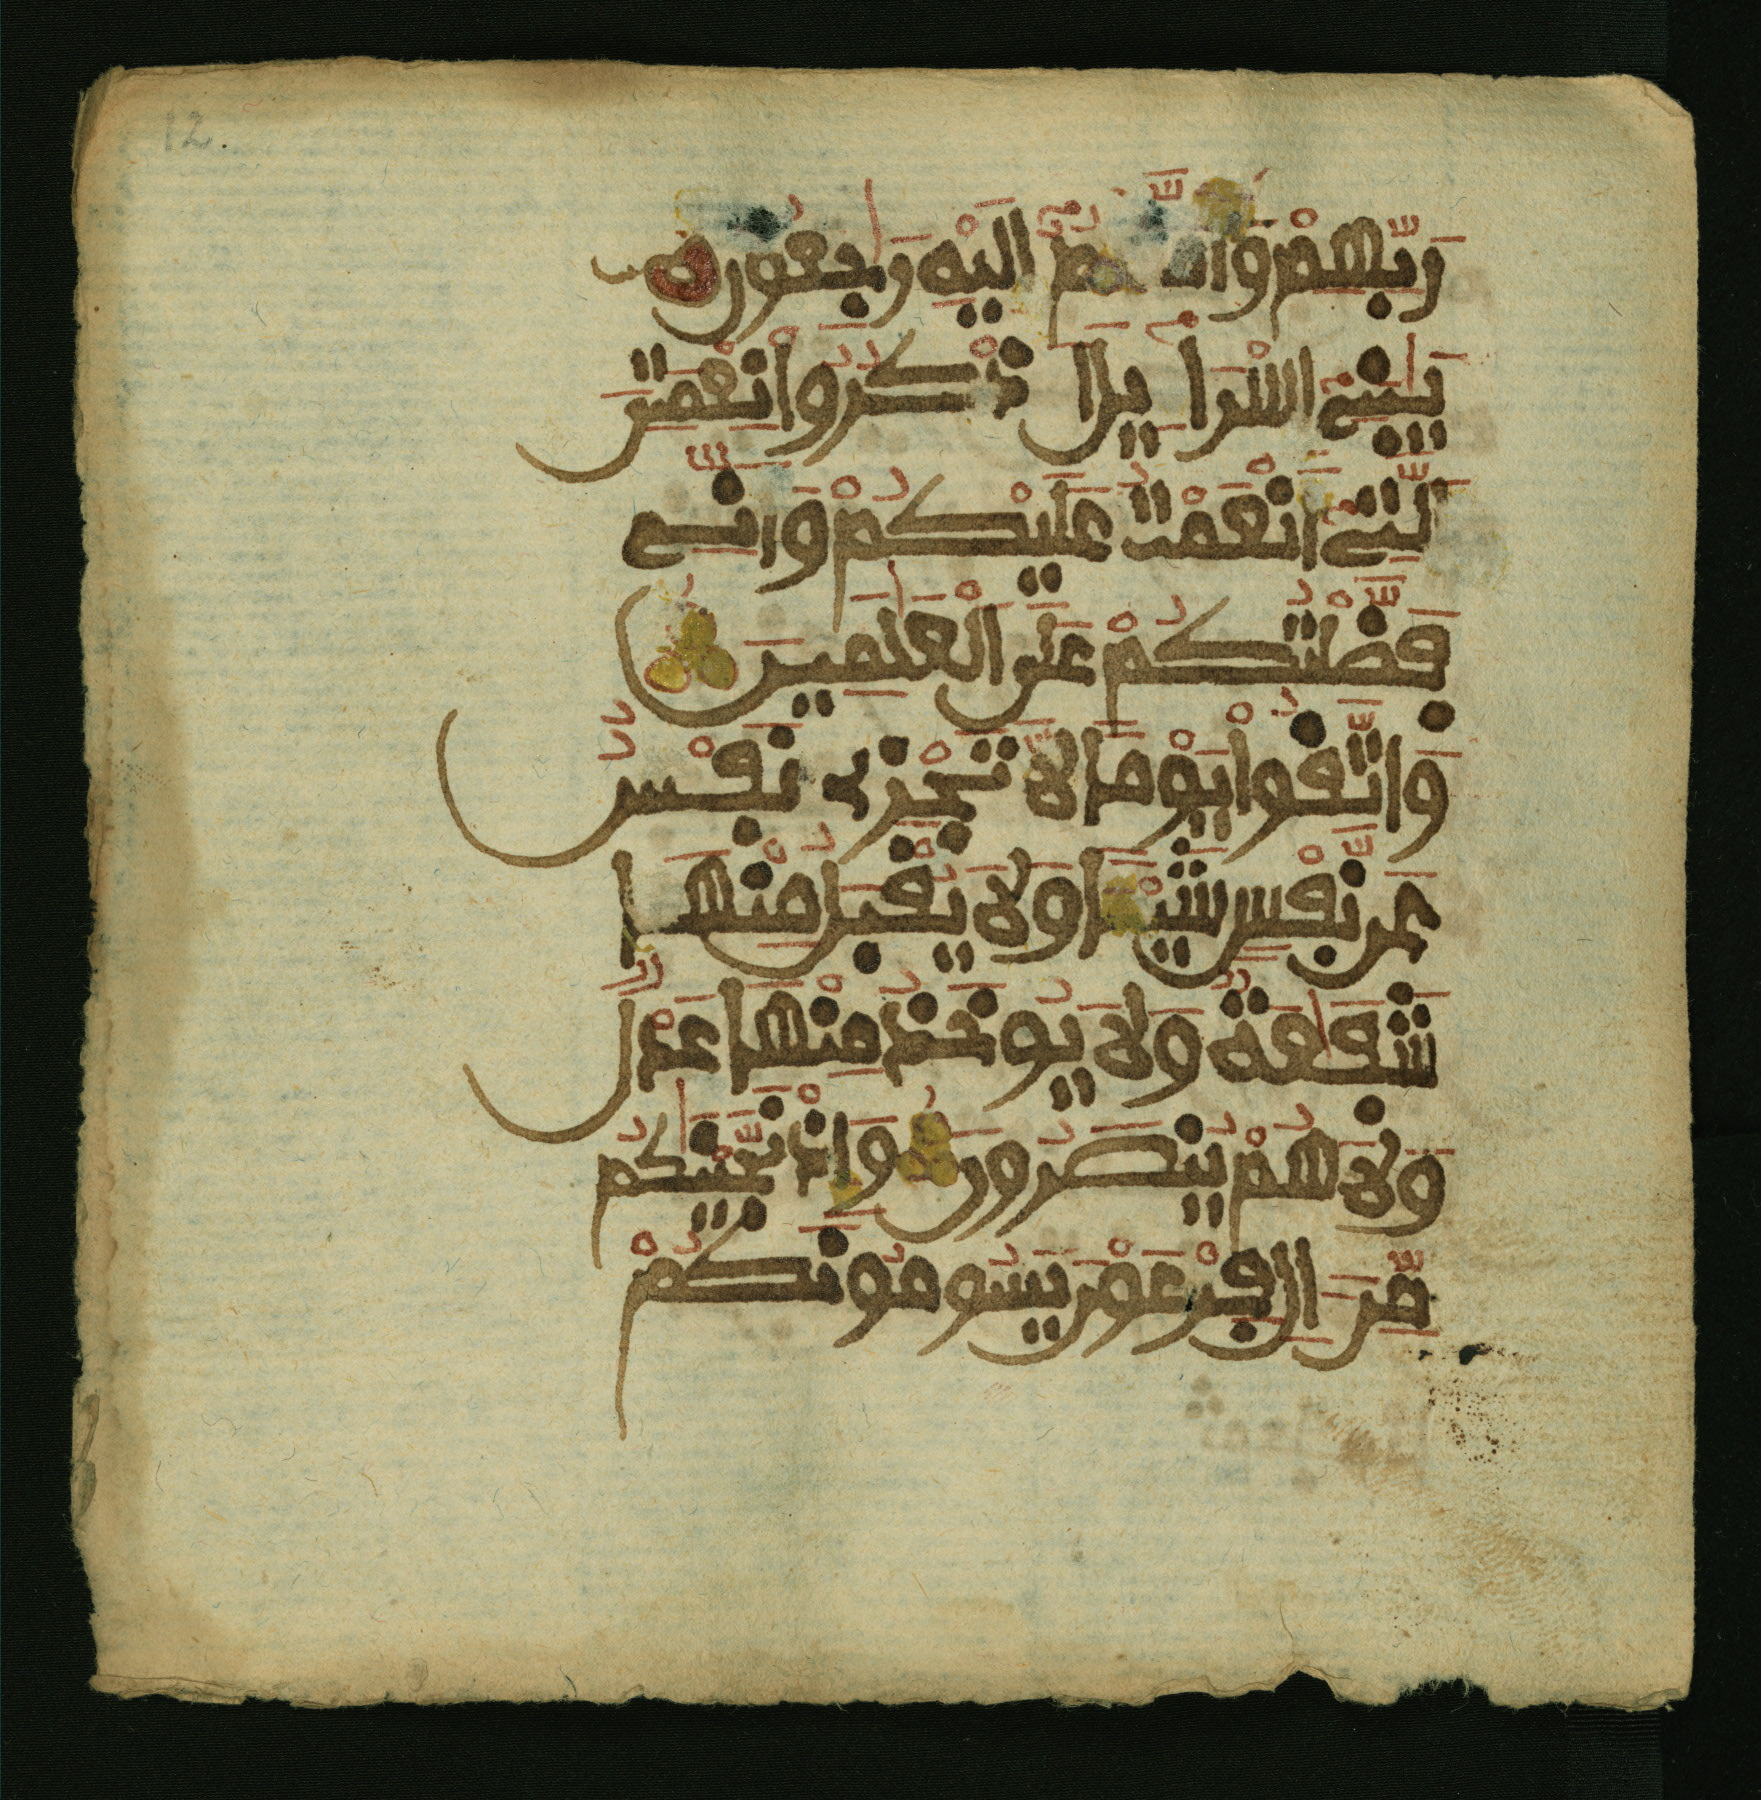 12.
رَبِّهِمْ وَأَنَّهُمُۥٓ إِلَيْهِ رَٰجِعُونَ
يَٰبَنِےٓ إِسْرَآءِيلَ ا۟ذْكُرُوا۟ نِعْمَتِيَ
ا۬لتِےٓ أَنْعَمْتُ عَلَيْكُمْ وَأَنِّے
فَضَّلْتُكُمْ عَلَى ا۬لْعَٰلَمِينَ
وَاتَّقُوا۟ يَوْمًا لَّا تَجْزِے نَفْسٌ
عَن نَّفْسٍ شَيْـًٔا وَلَا يُقْبَلُ مِنْهَا
شَفَٰعَةٌ وَلَا يُوخَذُ مِنْهَا عَدْلٌ
وَلَا هُمْ يُنصَرُونَ وَإِذْ نَجَّيْنَٰكُم
مِّنَ ءَالِ فِرْعَوْنَ يَسُومُونَكُمْ